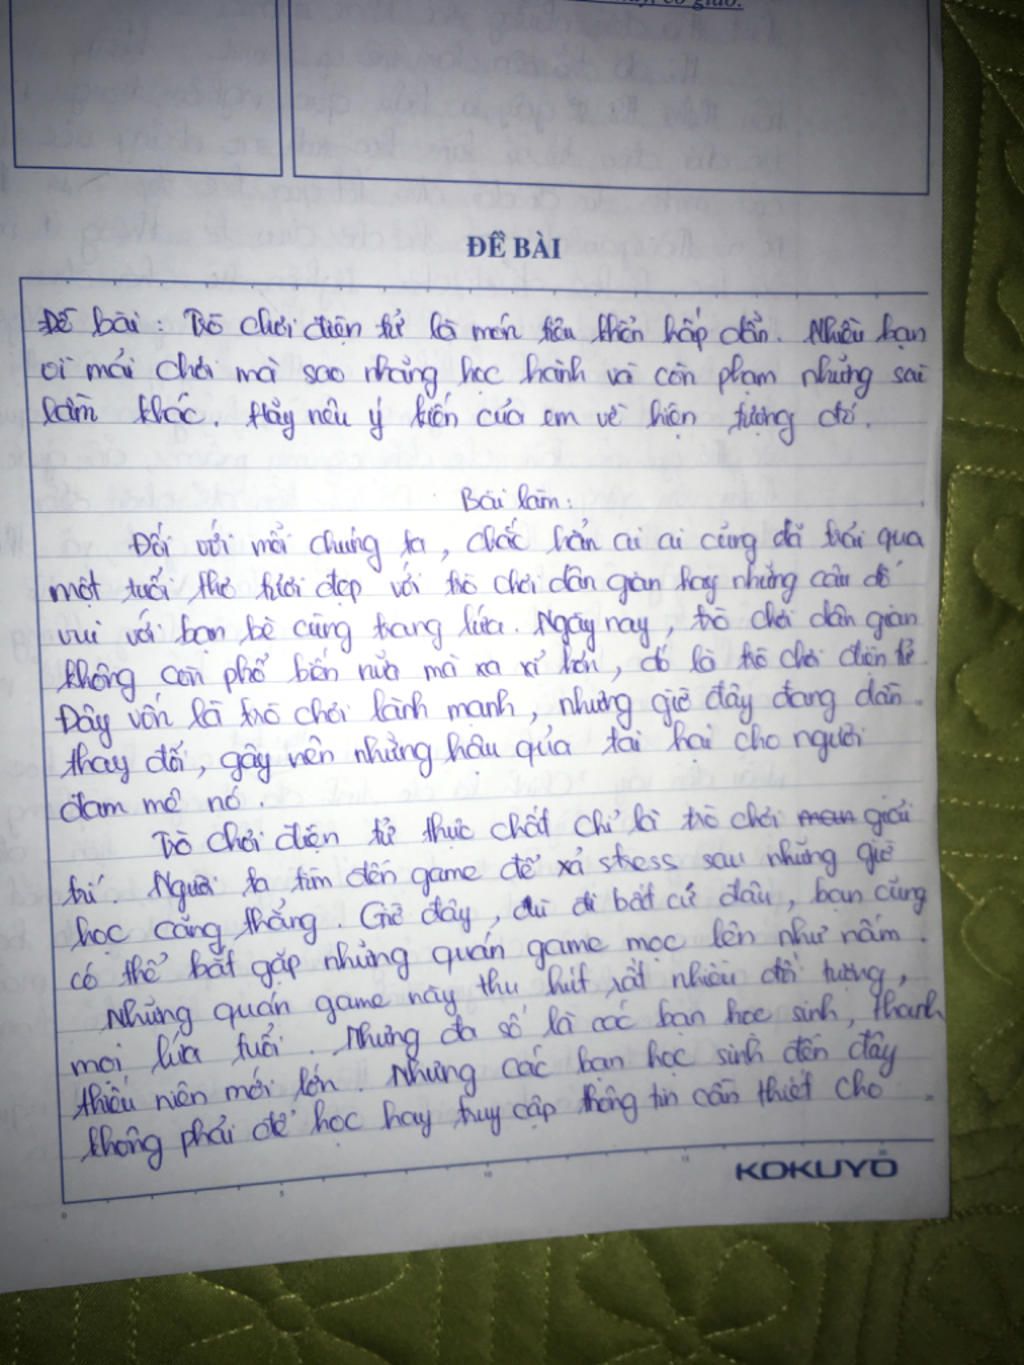 cô giáo.
ĐỀ BÀI
Đề bài : Trò chơi điện tử là món tiêu khiển hấp dẫn. Nhiều bạn
vì mải chơi mà sao nhãng học hành và còn phạm những sai
lầm khác. Hãy nêu ý kiến của em về hiện tượng đó.
Bài làm:
Đối với mỗi chúng ta, chắc hẳn ai ai cũng đã trải qua
một tuổi thơ tươi đẹp với trò chơi dân gian hay những câu đố
vui với bạn bè cùng trang lứa. Ngày nay, trò chơi dân gian
không còn phổ biến nữa mà xa xỉ hơn, đó là trò chơi điện tử.
Đây vốn là trò chơi lành mạnh, nhưng giờ đây đang dần
thay đổi, gây nên những hậu qủa tai hại cho người
đam mê nó.
Trò chơi điện tử thực chất chỉ là trò chơi giải
trí. Người ta tìm đến game để xả stress sau những giờ
học căng thẳng. Giờ đây, dù đi bất cứ đâu, bạn cũng
có thể bắt gặp những quán game mọc lên như nấm.
Những quán game này thu hút rất nhiều đối tượng,
mọi lứa tuổi. Nhưng đa số là các bạn học sinh, thanh
thiếu niên mới lớn. Nhưng các bạn học sinh đến đây
không phải để học hay truy cập thông tin cần thiết cho
KOKUYO